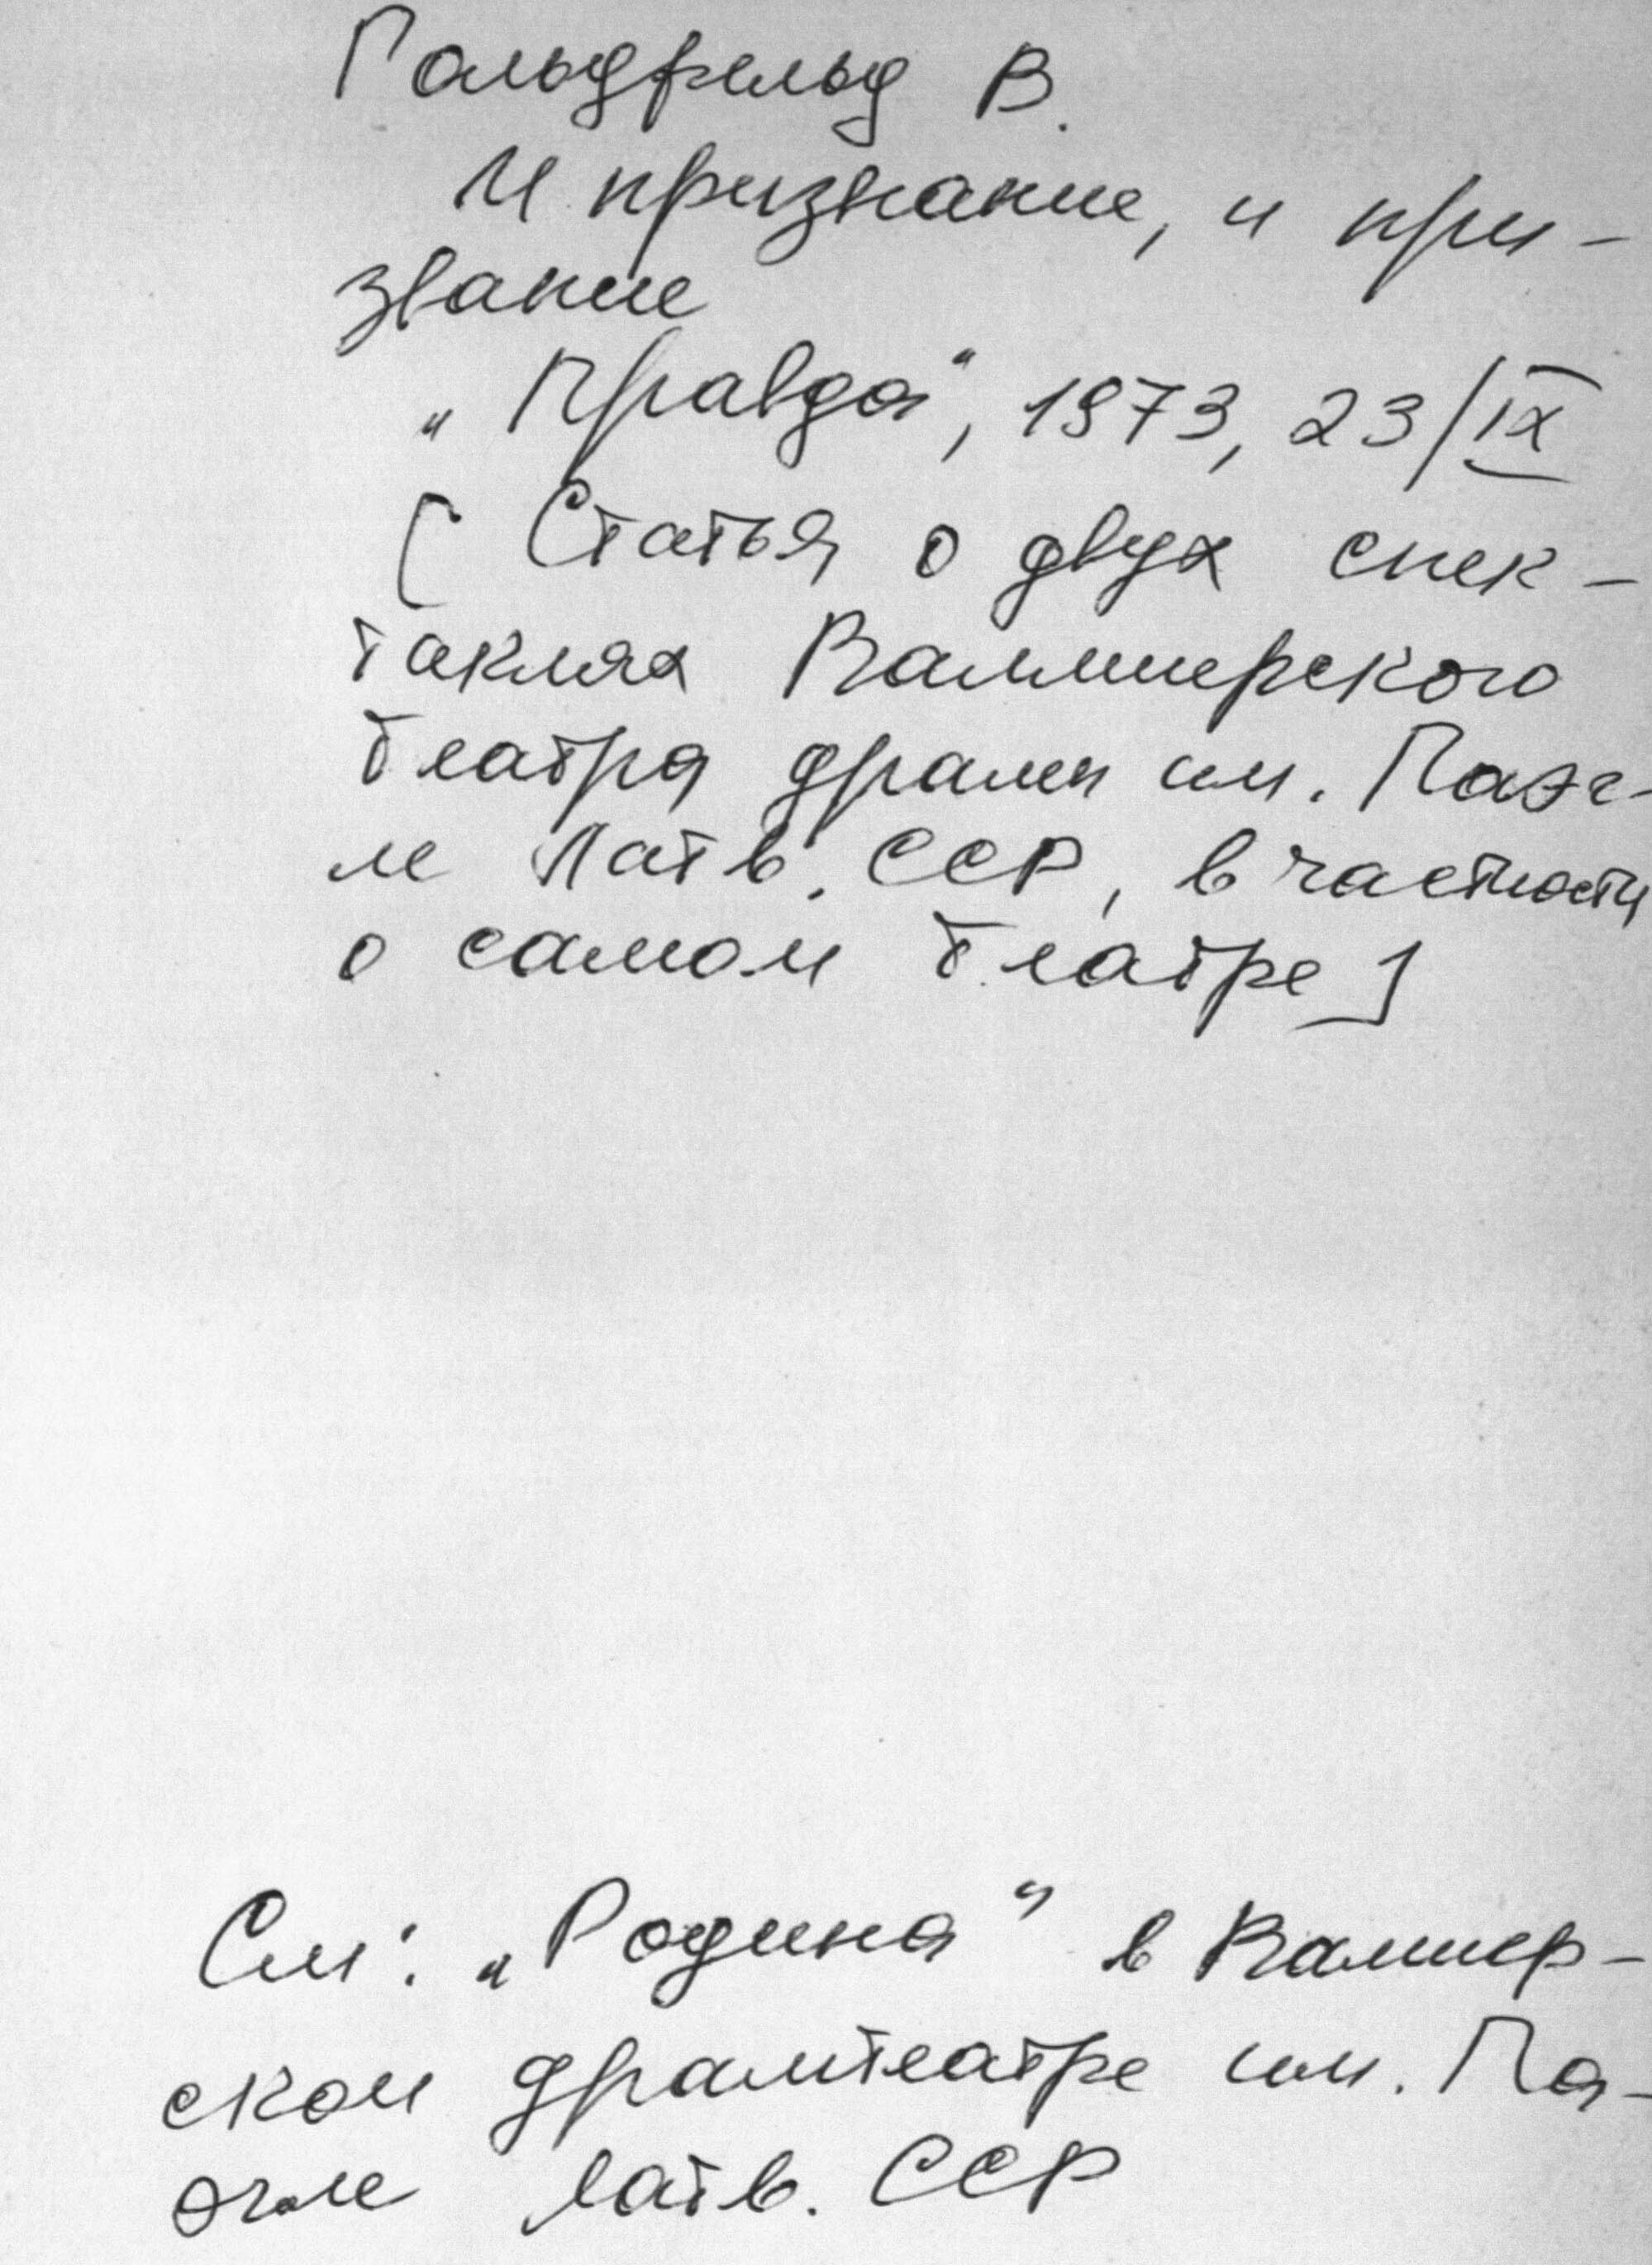 Гольдфельд В.
И признание, и при-
звание
„Правда", 1973, 23/IX
[Статья о двух спек-
таклях Валмиерского
театра драмы им. Паэг-
ле Латв. ССР, в частности
о самом театре]
См: „Родина" в Валмиер-
ском драмтеатре им. Па-
эгле Латв. ССР